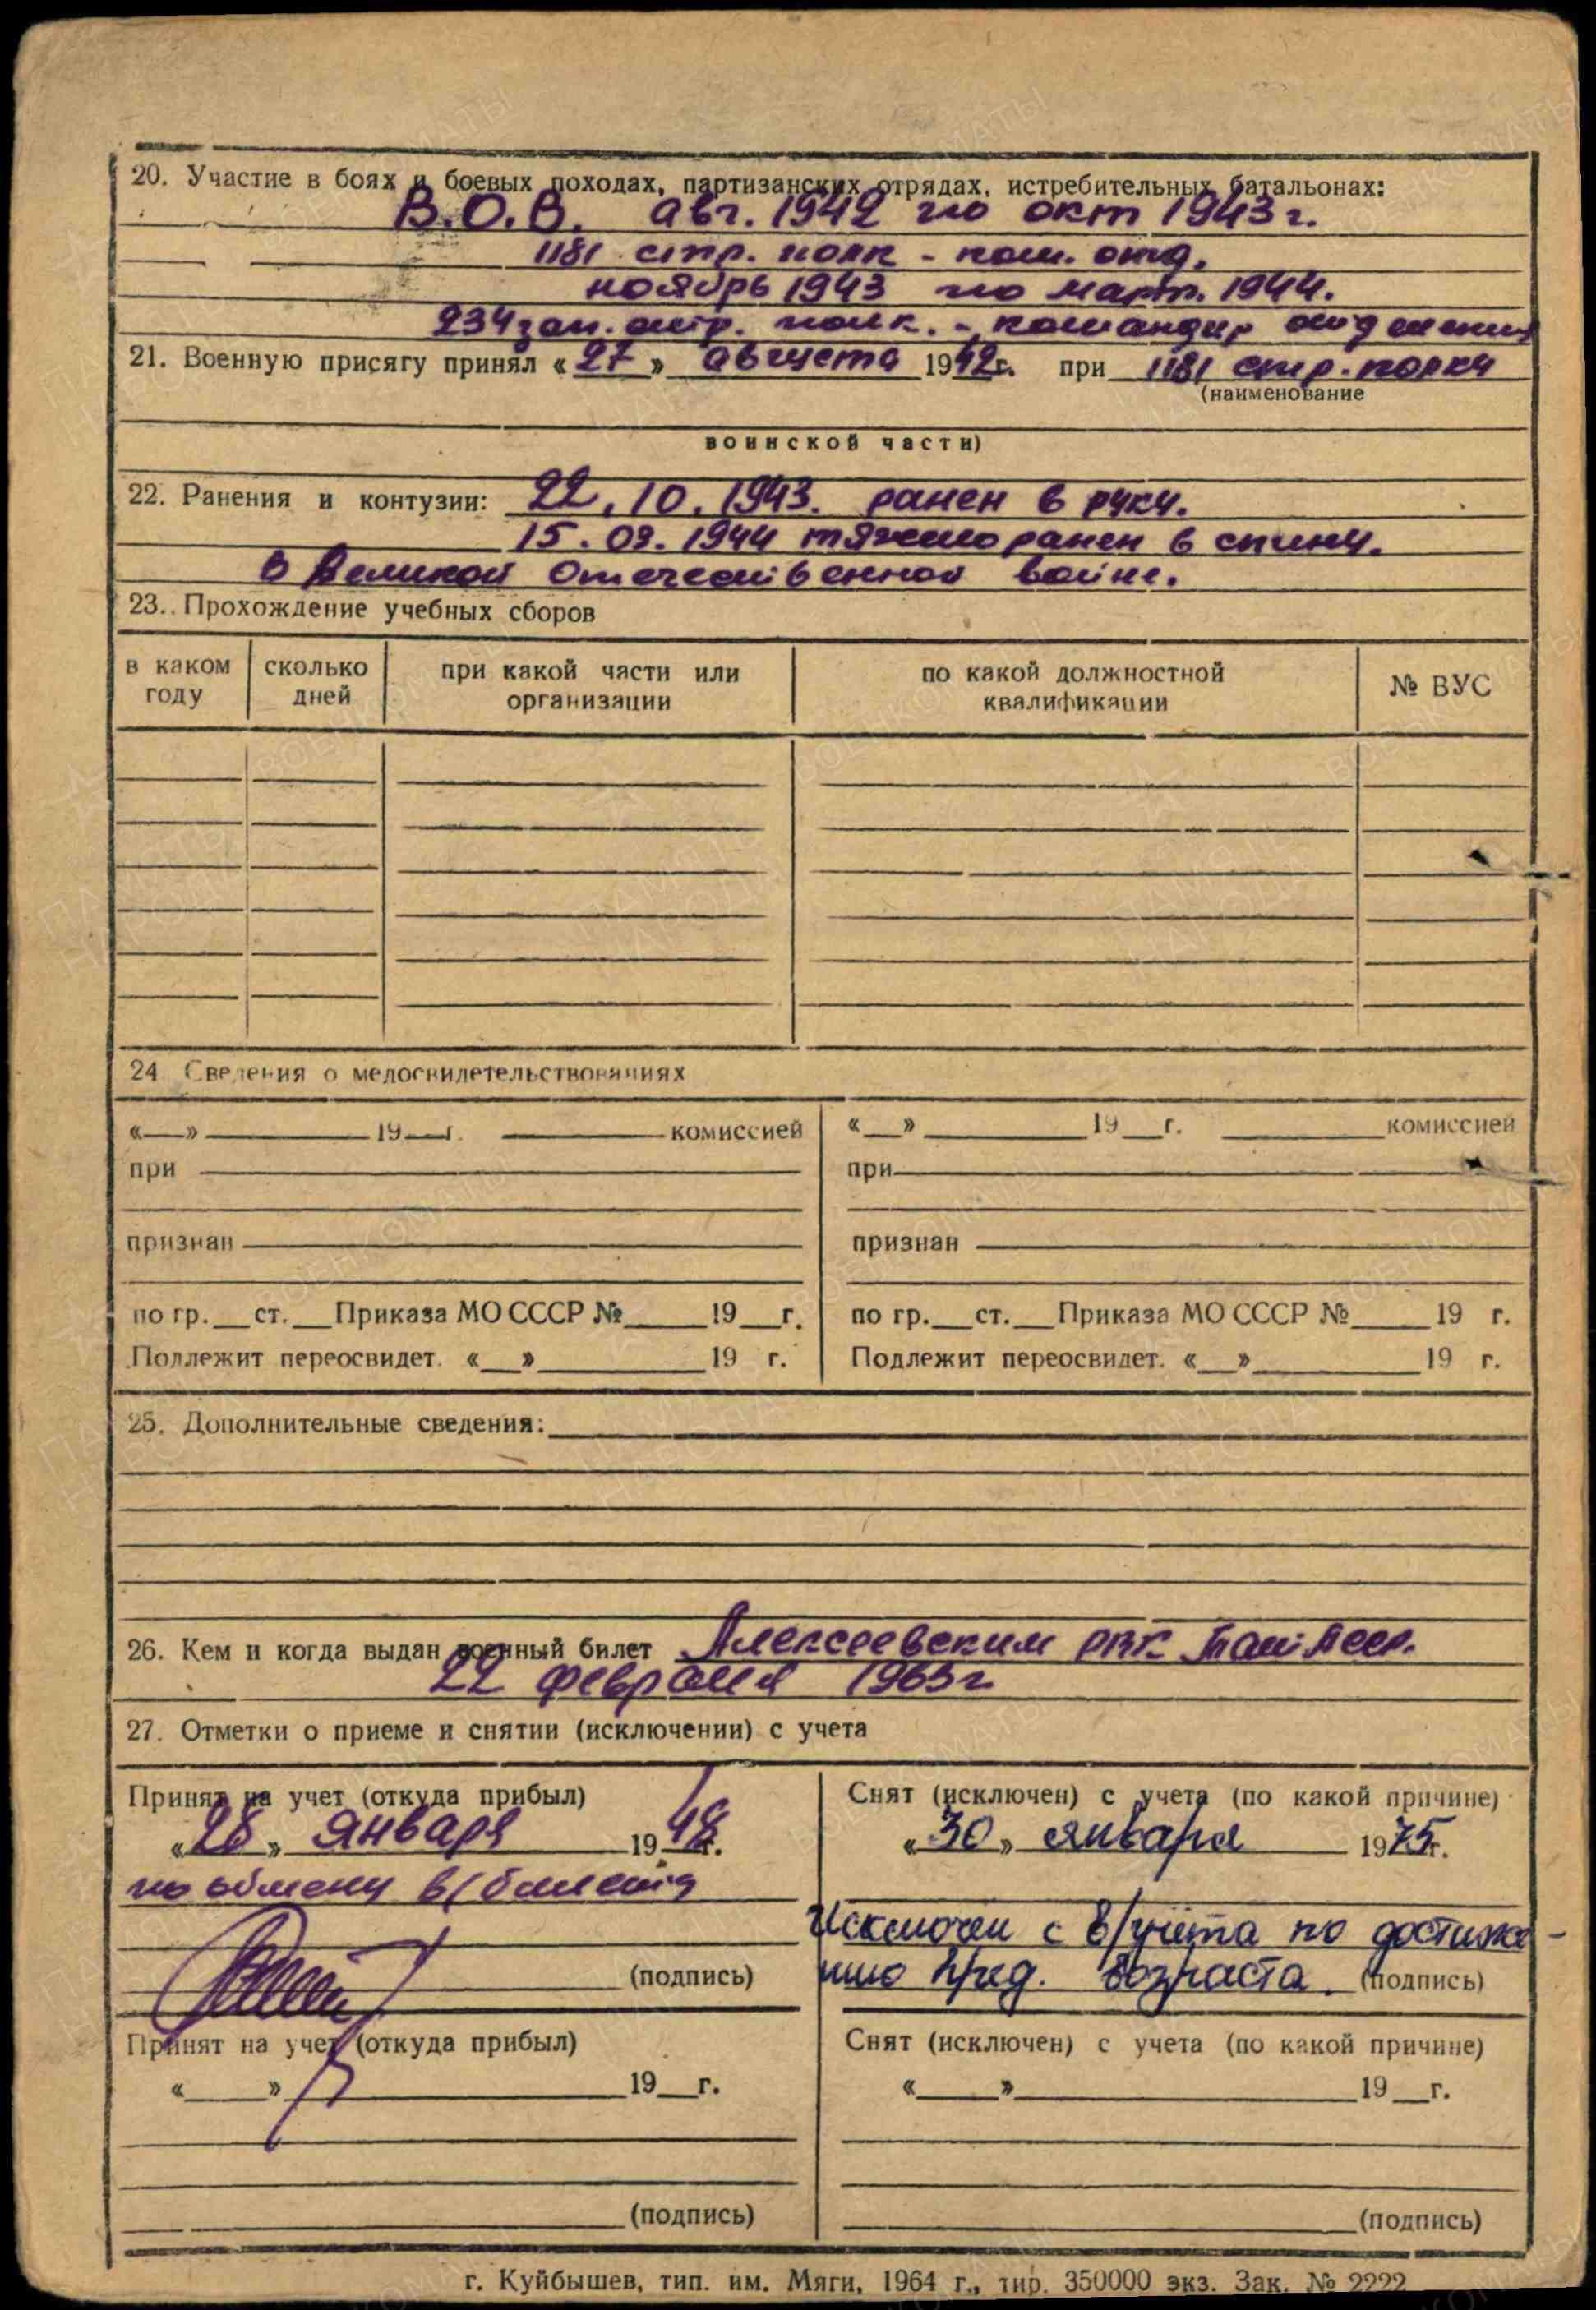 20. Участие в боях и боевых походах, партизанских отрядах, истребительных батальонах:
В.О.В. авг. 1942 по окт 1943 г.
1181 стр. полк - ком. отд.
ноябрь 1943 по март. 1944.
234 зап. стр. полк. - командир отделения
21. Военную присягу принял «27» августа 1942 г. при 1181 стр. полку
(наименование
воинской части)
22. Ранения и контузии: 22.10.1943. ранен в руку.
15.03.1944 тяжело ранен в спину.
в Великой Отечественной войне.
23. Прохождение учебных сборов
в каком году сколько дней при какой части или организации по какой должностной квалификации № ВУС
24 Сведения о медосвидетельствованиях
«__» ____ 19__г. ____ комиссией «__» ____ 19__г. ____ комиссией
при при
признан признан
по гр.__ст.__Приказа МО СССР №____19__г. по гр.__ст.__Приказа МО СССР №____19 г.
Подлежит переосвидет. «__»____19 г. Подлежит переосвидет. «__»____19 г.
25. Дополнительные сведения:
26. Кем и когда выдан военный билет Алексеевским РВК Тат. Асср.
22 февраля 1965 г
27. Отметки о приеме и снятии (исключении) с учета
Принят на учет (откуда прибыл) Снят (исключен) с учета (по какой причине)
«28» января 1948 г. «30» января 1975 г.
по обмену в/билета
Исключен с в/учета по достиже-
(подпись) нию пред. возраста. (подпись)
Принят на учет (откуда прибыл) Снят (исключен) с учета (по какой причине)
«__»____19__г. «__»____19__г.
(подпись) (подпись)
г. Куйбышев, тип. им. Мяги, 1964 г., тир. 350000 экз. Зак. № 2222